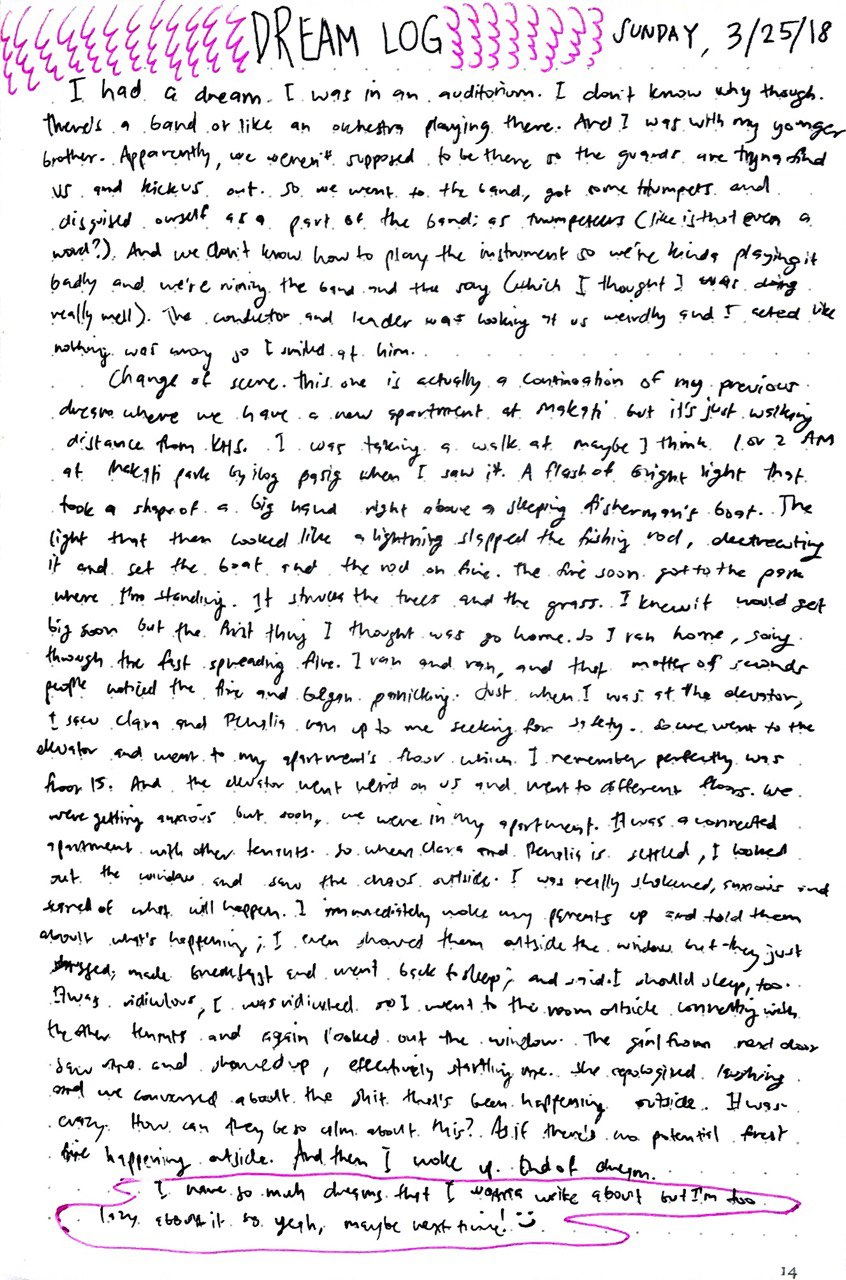 DREAM LOG SUNDAY, 3/25/18
I had a dream. I was in an auditorium. I don't know why though.
There's a band or like an orchestra playing there. And I was with my younger
brother. Apparently, we weren't supposed to be there so the guards are tryna find
us and kick us out. So we went to the band, got some trumpets and
disguised ourself as a part of the band; as trumpeteers (like is that even a
word?). And we don't know how to play the instrument so we're kinda playing it
badly and we're miming the band and the song (which I thought I was doing
really well). The conductor and leader was looking at us weirdly and I acted like
nothing was wrong so I smiled at him.
Change of scene. This one is actually a continuation of my previous
dream where we have a new apartment at Makati but it's just walking
distance from KHS. I was taking a walk at maybe I think 1 or 2 AM
at Makati park by ilog pasig when I saw it. A flash of bright light that
took a shape of a big hand right above a sleeping fisherman's boat. The
light that then looked like a lightning slapped the fishing rod, electrocuting
it and set the boat and the rod on fire. The fire soon got to the park
where I'm standing. It struck the trees and the grass. I knew it would get
big soon but the first thing I thought was go home. So I ran home, going
through the fast spreading fire. I ran and ran, and that matter of seconds
people noticed the fire and began panicking. Just when I was at the elevator,
I saw Clara and ran up to me seeking for safety. So we went to the
elevator and went to my apartment's floor which I remember perfectly was
floor 15. And the elevator went weird on us and went to different floors. We
were getting anxious but soon, we were in my apartment. It was a connected
apartment with other tenants. So when Clara and is settled, I looked
out the window and saw the chaos outside. I was really shakened, anxious and
scared of what will happen. I immediately woke my parents up and told them
about what's happening; I even showed them outside the window but they just
made breakfast and went back to sleep; and said I should sleep, too.
It was ridiculous, I was So I went to the room outside connecting with
the other tenants and again looked out the window. The girl from next door
saw me and showed up, effectively startling me. She apologised laughing
and we conversed about the shit that's been happening outside. It was
crazy. How can they be so calm about this? As if there's no potential forest
fire happening outside. And then I woke up. End of dream.
I have so much dreams that I wanna write about but I'm too
lazy about it so yeah, maybe next time! :)
14